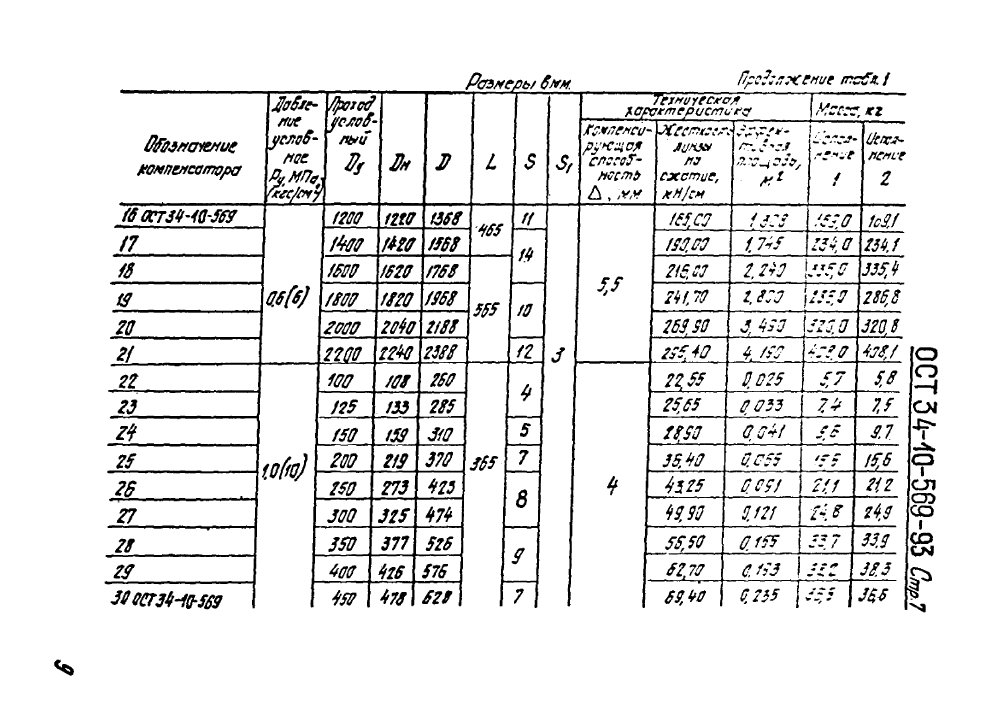 Размеры в мм. Продолжение табл. 1
Обозначение компенсатора
Давление условное Ру, МПа (кгс/см²)
Проход условный Dу
Dн
D
L
S
S₁
Техническая характеристика
Компенсирующая способность Δ, мм
Жесткость линзы на сжатие, кН/см
Эффективная площадь, м²
Масса, кг
Исполнение 1
Исполнение 2
16 ОСТ 34-10-569 0,6(6) 1200 1220 1368 465 11 3 5,5 165,00 1,309 169,1
17 1400 1420 1568 14 190,00 1,745 234,0 234,1
18 1600 1620 1768 565 216,00 2,240 335,0 335,4
19 1800 1820 1968 10 241,70 2,800 286,8
20 2000 2040 2188 269,90 3,490 320,0 320,8
21 2200 2240 2388 12 295,40 4,190 408,0 408,1
22 1,0(10) 100 108 260 365 4 4 22,55 0,025 5,7 5,8
23 125 133 285 25,65 0,033 7,4 7,5
24 150 159 310 5 28,90 0,041 9,6 9,7
25 200 219 370 7 36,40 0,065 15,5 15,6
26 250 273 423 8 43,25 0,091 21,1 21,2
27 300 325 474 49,90 0,121 24,8 24,9
28 350 377 526 9 56,50 0,155 33,7 33,9
29 400 426 576 62,70 0,193 38,2 38,3
30 ОСТ 34-10-569 450 478 628 7 69,40 0,235 36,5 36,6
ОСТ 34-10-569-93 Стр. 7
9